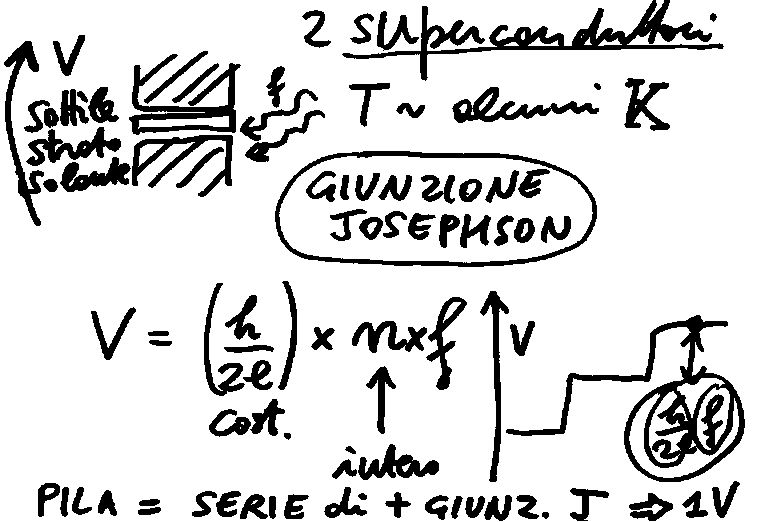 2 superconduttori
V
sottile
strato
isolante
f
T ~ alcuni K
GIUNZIONE
JOSEPHSON
V = (h/2e) × n × f
cost.
intero
V
(h/2e) f
PILA = SERIE di + GIUNZ. J ⇒ 1V